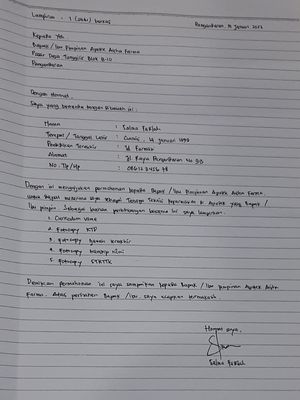 Lampiran : 1 (satu) berkas
Pangandaran, 14 Januari 2022
Kepada Yth
Bapak / Ibu Pimpinan Apotek Aisha Farma
Pasar Desa Tunggilis Blok B-10
Pangandaran
Dengan Hormat,
Saya yang bertanda tangan dibawah ini :
Nama : Salwa
Tempat / Tanggal Lahir : Ciamis, 14 Januari 1999
Pendidikan Terakhir : D3 Farmasi
Alamat : Jl. Raya Pangandaran No
No. Tlp / Hp :
Dengan ini mengajukan permohonan kepada Bapak / Ibu Pimpinan Apotek Aisha Farma,
untuk dapat Tenaga Teknis Kefarmasian di Apotek yang Bapak /
Ibu pimpin. Sebagai bahan pertimbangan bersama ini saya lampirkan :
1. Curriculum Vitae
2. Fotocopy KTP
3. Fotocopy Ijazah terakhir
4. Fotocopy transkip nilai
5. Fotocopy STRTTK
Demikian permohonan ini saya sampaikan kepada Bapak / Ibu Pimpinan Apotek Aisha
Farma. Atas perhatian Bapak / Ibu, saya ucapkan terimakasih.
Hormat saya,
Salwa